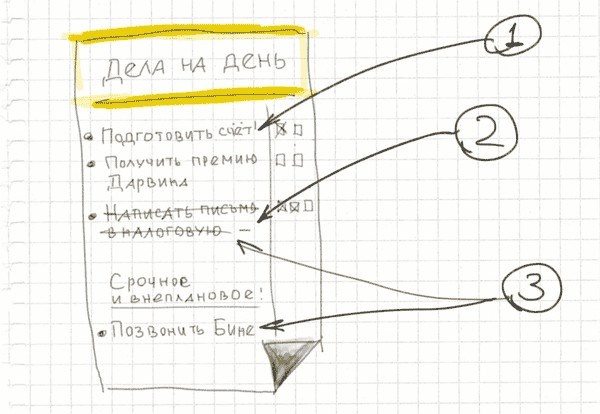 Дела на день
1
• Подготовить счёт!
2
• Получить премию
Дарвина
• Написать письмо
в налоговую —
3
Срочное
и внеплановое!
• Позвонить Бине